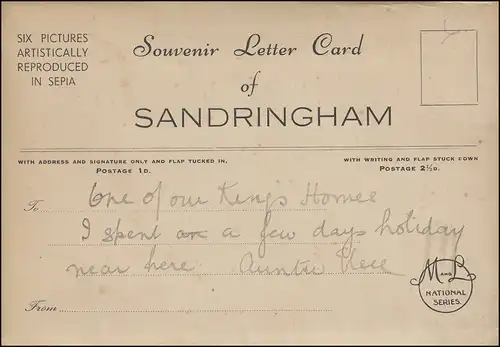 SIX PICTURES
ARTISTICALLY
REPRODUCED
IN SEPIA
Souvenir Letter Card
of
SANDRINGHAM
WITH ADDRESS AND SIGNATURE ONLY AND FLAP TUCKED IN.
POSTAGE 1D.
WITH WRITING AND FLAP STUCK DOWN
POSTAGE 2½D.
To One of our King's Homes
I spent a few days holiday
near here. Auntie
From
M AND L
NATIONAL
SERIES.